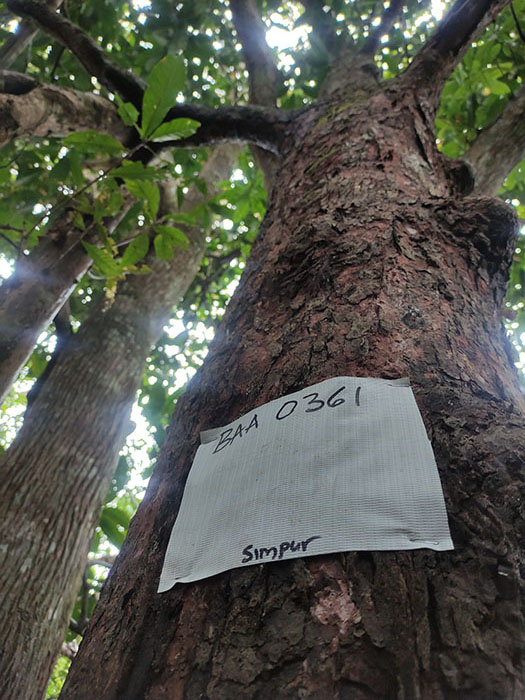 BAA 0361
Simpur